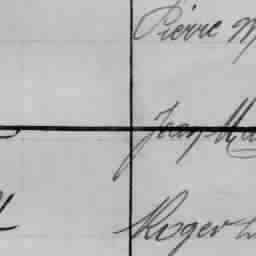 Pierre M
Jean Ma
Roger